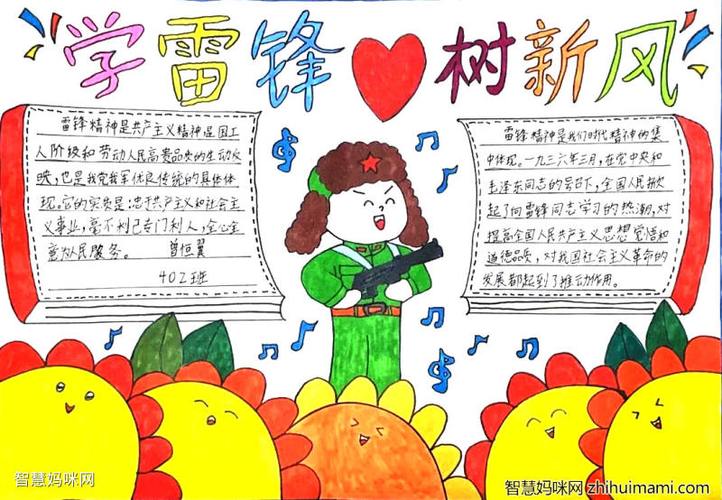 学雷锋 树新风
雷锋精神是共产主义精神是国工
人阶级和劳动人民高贵品质的生动反
映，也是我党我军优良传统的具体体
现。它的实质是：忠于共产主义和社会主
义事业，毫不利己专门利人，全心全
意为人民服务。 曾恒翼
402班
雷锋精神是我们时代精神的集
中体现。一九三六年三月，在党中央和
毛泽东同志的号召下，全国人民掀
起了向雷锋同志学习的热潮，对
提高全国人民共产主义思想觉悟和
道德品质，对我国社会主义革命的
发展都起到了推动作用。
智慧妈咪网
智慧妈咪网 zhihuimami.com